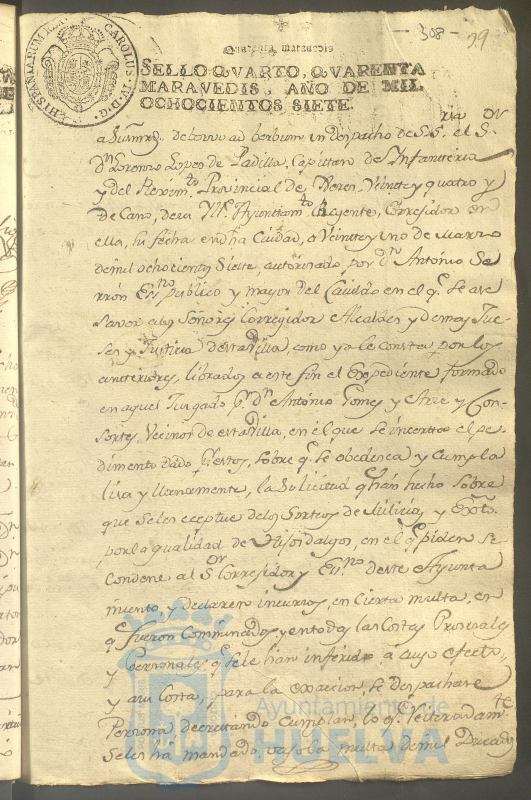 308 29
HISPANIARUM REX CAROLUS IV D G
Quarenta maravedis
SELLO QVARTO, QVARENTA
MARAVEDIS, AÑO DE MIL
OCHOCIENTOS SIETE.
a Su mrd. de berbo ad berbum un despacho de S. S. el S.
Dn Lorenzo Lopez de Padilla, Capitan de Infanteria
y del Regim.to Provincial de Xerez, Veinte y quatro y
Decano, de su Yll. Ayuntam.to Regente, Corregidor en
ella, su fecha en dha Ciudad, a Veinte y uno de Marzo
de mil ochocientos Siete, autorizado, por Dn Antonio Se
rrón Essno publico y mayor del Cavildo en el q. se ase
Savor a los Señores Corregidor Alcaldes y demas Jue
ses y Justicia de esta Villa, como ya le consta por los
anteriores, librados a este fin el Expediente formado
en aquel Juzgado pr. Dn Antonio Gomez y Arze y Con
sortes, Vecinos de esta Villa, en el que se incerta el pe
dimento dado pr. estos, sobre q. se obedesca y Cumpla
lisa y llanamente, la Solicitud q. han hecho sobre
que se les exceptue de los Sorteos de Milicia, y
por la qualidad de Hijosdalgos, en el q. piden se
Condene al Sor Corregidor y Essno de este Ayunta
miento, y declaren incursos, en Cierta multa, en
q. fueron Comminados, y en todas las Costas Prosesales
y Personales q. se le han inferido a cuyo efecto,
y a su Costa, para la exaccion, se despachase
Persona, decretando Cumplan, lo q. reiteradamte
Seles ha mandado vajo la multa de mil Ducados
Ayuntamiento de
HUELVA